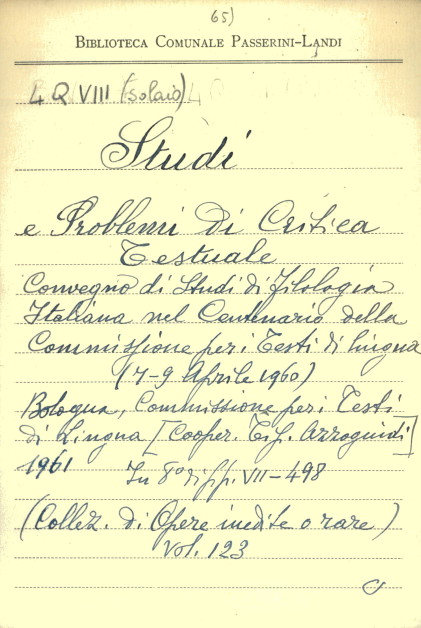 65)
BIBLIOTECA COMUNALE PASSERINI-LANDI
4 Q VIII (solaio)
Studi
e Problemi di Critica
Testuale
Convegno di Studi di filologia
Italiana nel Centenario della
Commissione per i Testi di lingua
(7-9 Aprile 1960)
Bologna, Commissione per i Testi
di Lingua [Cooper. Tip. Azzoguidi]
1961 In 8° di pp. VII-498
(Collez. di Opere inedite o rare)
Vol. 123